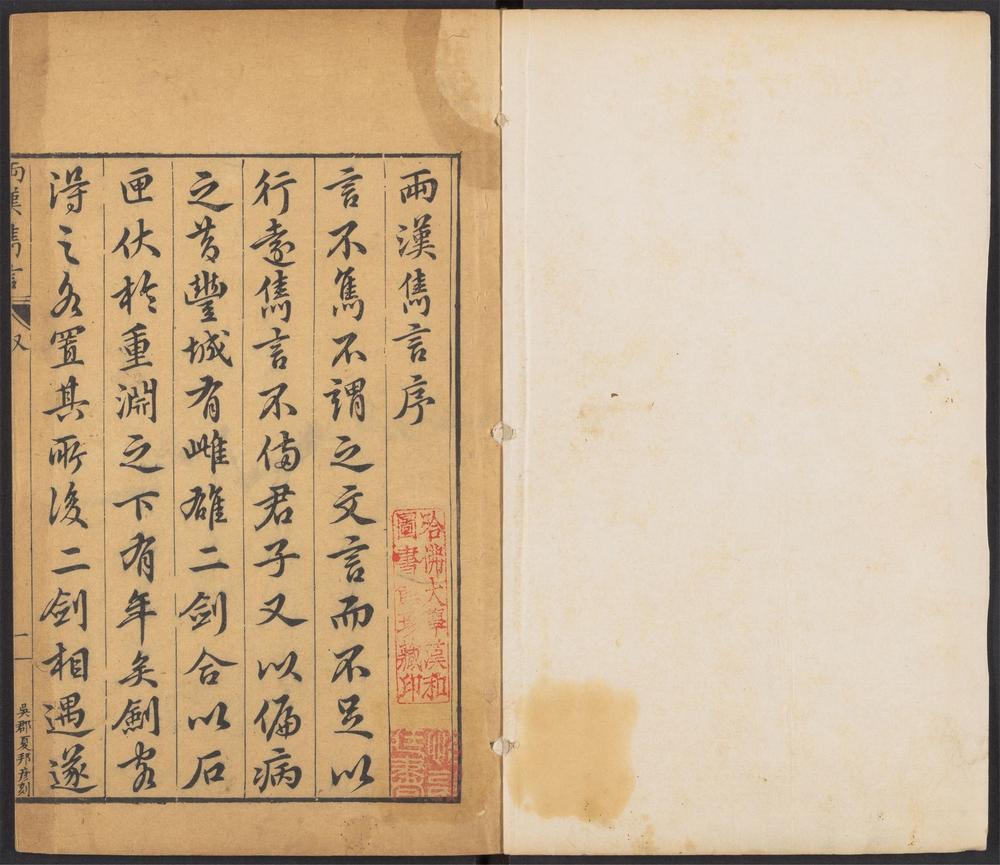 兩漢雋言序
言不雋不謂之文言而不足以
行遠雋言不備君子又以偏病
之昔豐城有雌雄二劍合以石
匣伏於重淵之下有年矣劍客
淂之各置其所後二劍相遇遂
兩漢雋言
又
一
吳郡夏邦彥刻
哈佛大學漢和
圖書館珍藏印